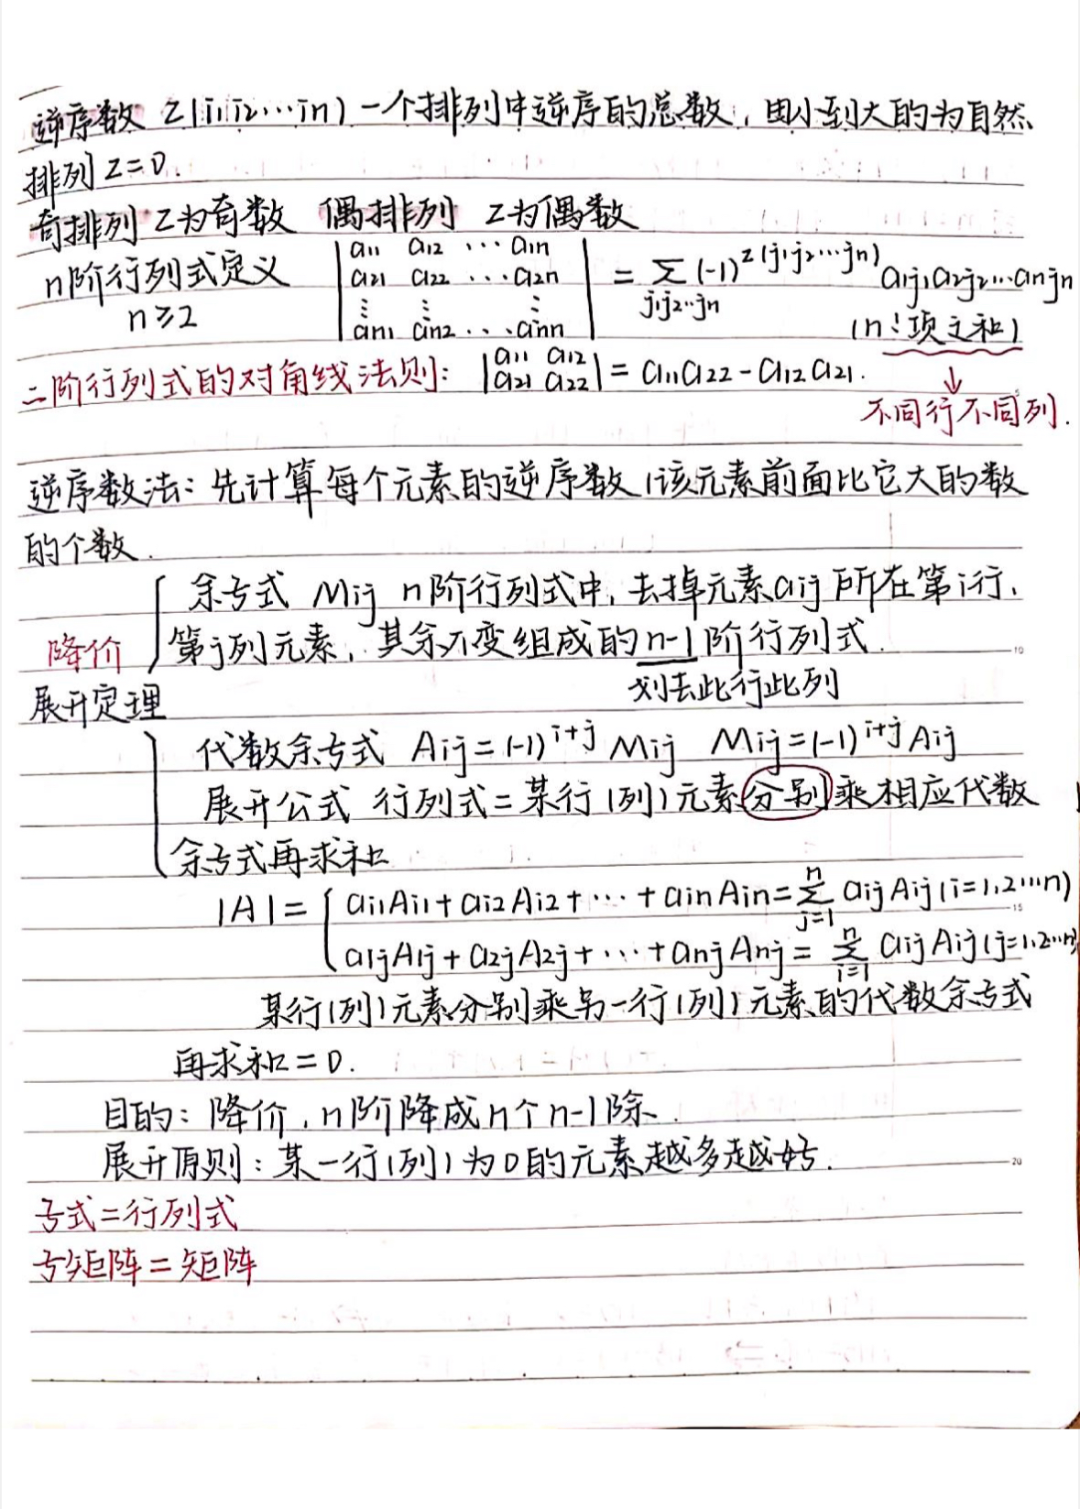 逆序数 Z(i1i2…in) 一个排列中逆序的总数,由小到大的为自然
排列 Z=0.
奇排列 Z为奇数 偶排列 Z为偶数
n阶行列式定义 n≥2 |a11 a12 … a1n
a21 a22 … a2n
⋮ ⋮ ⋮
an1 an2 … ann| = Σ j1j2…jn (-1)^Z(j1j2…jn) a1j1a2j2…anjn
(n!项之和)
二阶行列式的对角线法则: |a11 a12
a21 a22| = a11a22-a12a21.
↓
不同行不同列.
逆序数法: 先计算每个元素的逆序数(该元素前面比它大的数
的个数.
余子式 Mij n阶行列式中,去掉元素aij所在第i行,
降价 第j列元素,其余不变组成的n-1阶行列式.
划去此行此列
展开定理
代数余子式 Aij=(-1)^i+j Mij Mij=(-1)^i+j Aij
展开公式 行列式=某行(列)元素分别乘相应代数
余子式再求和
|A|= { ai1Ai1+ai2Ai2+…+ainAin=Σ j=1 n aijAij(i=1,2…n)
a1jA1j+a2jA2j+…+anjAnj=Σ i=1 n aijAij(j=1,2…n)
某行(列)元素分别乘另一行(列)元素的代数余子式
再求和=0.
目的: 降价,n阶降成n个n-1阶.
展开原则: 某一行(列)为0的元素越多越好.
子式=行列式
子矩阵=矩阵
10
15
20